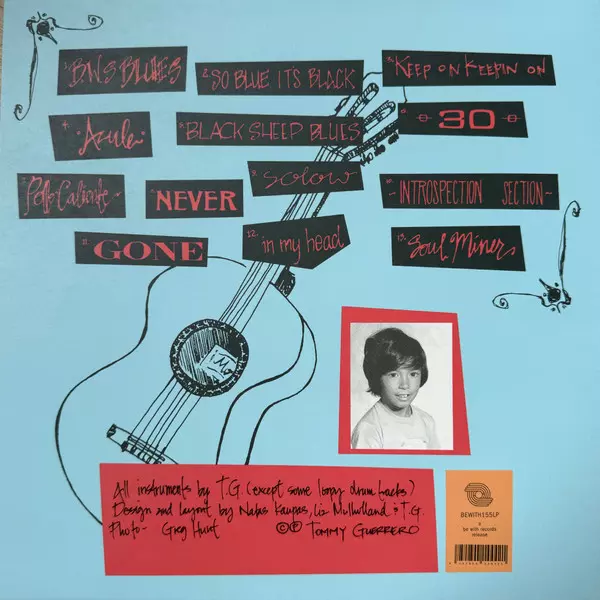 1. BWS BLUES
2. SO BLUE IT'S BLACK
3. KEEP ON KEEPIN ON
4. "Azule"
5. BLACK SHEEP BLUES
6. 30
7. Pollo Caliente~
8. NEVER
9. SOLOW
10. ~INTROSPECTION SECTION~
11. GONE
12. in my head
13. Soul Miner
All instruments by T.G. (except some loopy drum tracks)
Design and layout by Natas Kaupas, Liz Mulholland & T.G.
Photo- Greg Hunt ©℗ TOMMY GUERRERO
BEWITH155LP
a
be with records
release